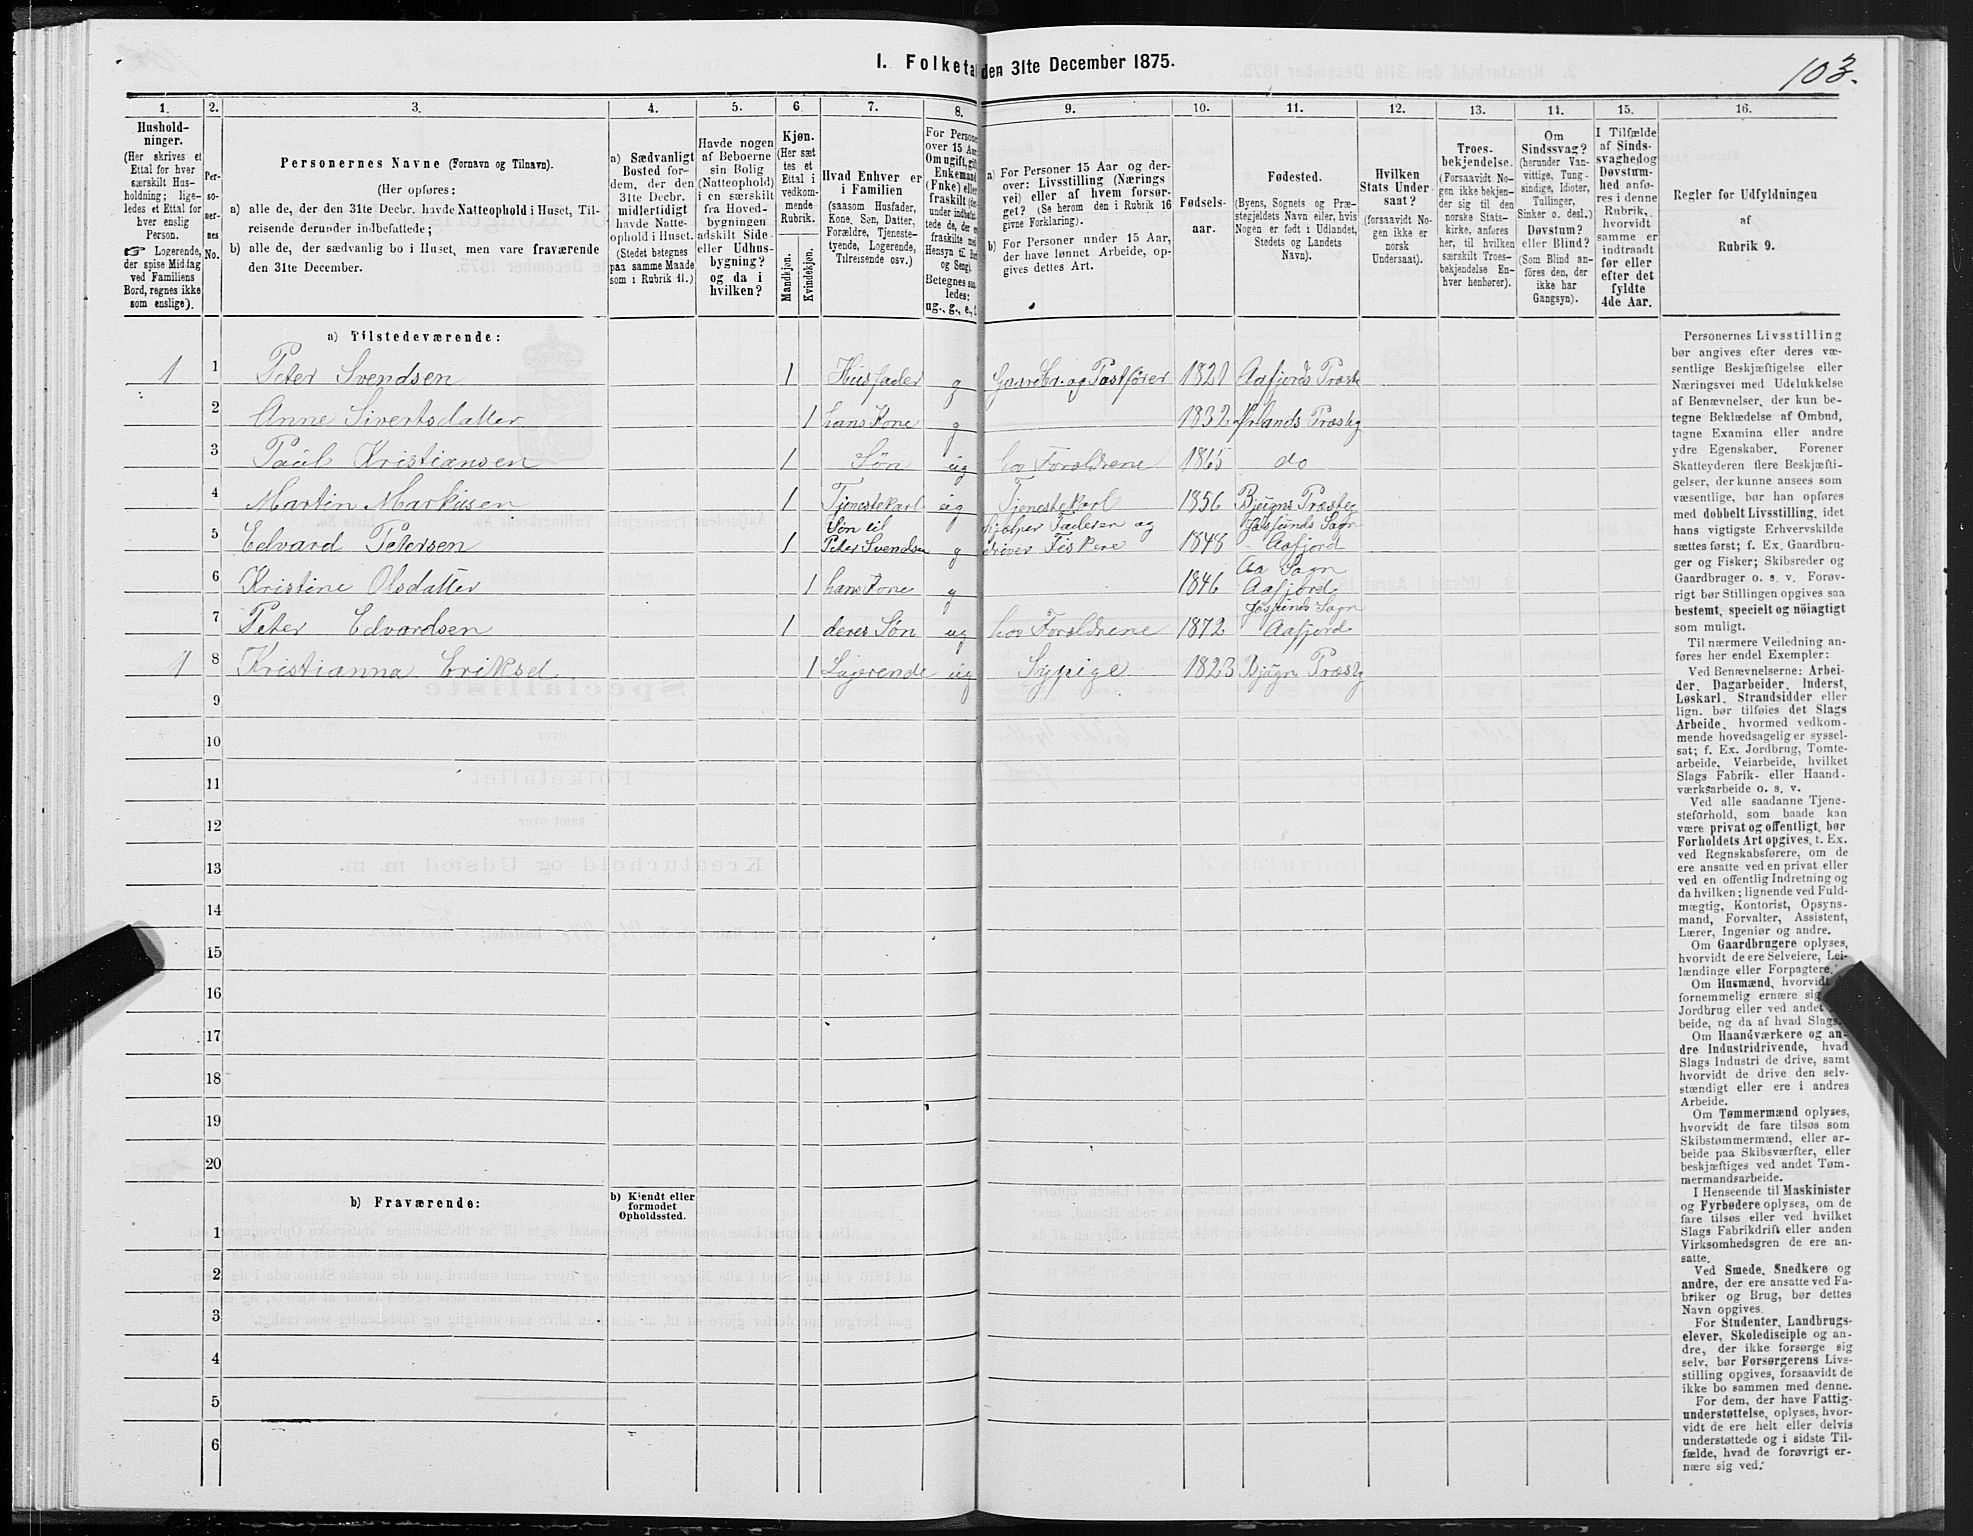 I. Folketal den 31te December 1875.
103.
1.
Hushold-
ninger.
(Her skrives et
Ettal for hver
særskilt Hus-
holdning; lige-
ledes et Ettal for
hver enslig
Person.
☞ Logerende,
der spise Middag
ved Familiens
Bord, regnes ikke
som enslige).
2.
Per-
so-
ner-
nes
No.
3.
Personernes Navne (Fornavn og Tilnavn).
(Her opføres:
a) alle de, der den 31te Decbr. havde Natteophold i Huset, Til-
reisende derunder indbefattede;
b) alle de, der sædvanlig bo i Huset, men vare fraværende
den 31te December.
4.
a) Sædvanligt
Bosted for-
dem, der den
31te Decbr.
midlertidigt
havde Natte-
ophold i Huset.
(Stedet betegnes
paa samme Maade
som i Rubrik 11.)
5.
Havde nogen
af Beboerne
sin Bolig
(Natteophold)
i en særskilt
fra Hoved-
bygningen
adskilt Side-
eller Udhus-
bygning?
og da i
hvilken?
6.
Kjøn.
(Her sæt
tes et
Ettal i
vedkom-
mende
Rubrik.
Mandkjøn.
Kvindekjøn.
7.
Hvad Enhver er
i Familien
(saasom Husfader,
Kone, Søn, Datter,
Forældre, Tjeneste-
tyende, Logerende,
Tilreisende osv.)
8.
For Persone
over 15 Aar
Om ugift, gift
Enkemand
(Enke) eller
fraskilt
under indbefat
tede de, der er
fraskilte med
Hensyn til Bord
og Seng).
Betegnes saa-
ledes:
ug., g., e., f.
9.
a) For Personer 15 Aar og der-
over: Livsstilling (Nærings
vei) eller af hvem forsør-
get? (Se herom den i Rubrik 16
givne Forklaring).
b) For Personer under 15 Aar,
der have lønnet Arbeide, op-
gives dettes Art.
10.
Fødsels-
aar.
11.
Fødested.
(Byens, Sognets og Præ-
stegjeldets Navn eller, hvis
Nogen er født i Udlandet,
Stedets og Landets
Navn).
12.
Hvilken
Stats Under-
saat?
(forsaavidt No-
gen ikke er
norsk
Undersaat).
13.
Troes-
bekjendelse.
(Forsaavidt No-
gen ikke bekjen-
der sig til den
norske Stats-
kirke, anføres
her, til hvilken
særskilt Troes-
bekjendelse En-
hver henhører).
14.
Om
Sindssvag?
(herunder Van-
vittige, Tung-
sindige, Idioter,
Tullinger,
Sinker o. desl.)
Døvstum?
eller Blind?
(Som Blind an-
føres den, der
ikke har
Gangsyn).
15.
I Tilfælde
af Sinds-
svaghed og
Døvstum-
hed anfø-
res i denne
Rubrik,
hvorvidt
samme er
indtraadt
før eller
efter det
fyldte
4de Aar.
16.
Regler for Udfyldningen
af
Rubrik 9.
a) Tilstedeværende:
1 1 Peter Svendsen 1 Husfader g Gaardbr. og Postfører 1821 Aafjords Præste
2 Anne Sivertsdatter 1 hans Kone g 1832 Ørlands Præstg
3 Paul Kristiansen 1 Søn ug hos Forældrene 1865 do
4 Martin Markusen 1 Tjenestekarl ug Tjenestekarl 1856 Bjugns Præsteg
5 Edvard Petersen 1 Søn til Peter Svendsen g hjælper Faderen og driver Fiskere 1848 Jøssunds Sogn Aafjord
6 Kristine Olsdatter 1 hans Kone g 1846 Aa Sogn Aafjord
7 Peter Edvardsen 1 deres Søn ug hos Forældrene 1872 Jøssunds Sogn Aafjord
1 8 Kristianna Eriksd 1 Logerende ug Sypige 1823 Bjugn Præstg
9
10
11
12
13
14
15
16
17
18
19
20
b) Fraværende:
b) Kjendt eller
formodet
Opholdssted.
1
2
3
4
5
6
Personernes Livsstilling
bør angives efter deres væ-
sentlige Beskjæftigelse eller
Næringsvei med Udelukkelse
af Benævnelser, der kun be-
tegne Beklædelse af Ombud,
tagne Examina eller andre
ydre Egenskaber. Forener
Skatteyderen flere Beskjæfti-
gelser, der kunne ansees som
væsentlige, bør han opføres
med dobbelt Livsstilling, idet
hans vigtigste Erhvervskilde
sættes først; f. Ex. Gaardbru-
ger og Fisker; Skibsreder og
Gaardbruger o. s. v. Forøv-
rigt bør Stillingen opgives saa
bestemt, specielt og nöiagtigt
som muligt.
Til nærmere Veiledning an-
føres her endel Exempler:
Ved Benævnelserne: Arbei-
der, Dagarbeider, Inderst,
Løskarl, Strandsidder eller
lign. bør tilføies det Slags
Arbeide, hvormed vedkom-
mende hovedsagelig er syssel-
sat; f. Ex. Jordbrug, Tomte-
arbeide, Veiarbeide, hvilket
Slags Fabrik- eller Haand-
værksarbeide o. s. v.
Ved alle saadanne Tjene-
steforhold, som baade kan
være privat og offentligt, bør
Forholdets Art opgives, t. Ex.
ved Regnskabsførere, om de
ere ansatte ved en privat eller
ved en offentlig Indretning og
da hvilken; lignende ved Fuld-
mægtig, Kontorist, Opsyns-
mand, Forvalter, Assistent,
Lærer, Ingeniør og andre.
Om Gaardbrugere oplyses,
hvorvidt de ere Selveiere, Lei-
lændinge eller Forpagtere.
Om Husmænd, hvorvidt
fornemmelig ernære sig
Jordbrug eller ved andet
beide, og da af hvad Slags.
Om Haandværkere og an-
dre Industridrivende, hvad
Slags Industri de drive, samt
hvorvidt de drive den selv-
stændigt eller ere i andres
Arbeide.
Om Tømmermænd oplyses,
hvorvidt de fare tilsøs som
Skibstømmermænd, eller ar-
beide paa Skibsværfter, eller
beskjæftiges ved andet Tøm-
mermandsarbeide.
I Henseende til Maskinister
og Fyrbødere oplyses, om de
fare tilsøs eller ved hvilket
Slags Fabrikdrift eller anden
Virksomhedsgren de ere an-
satte.
Ved Smede, Snedkere og
andre, der ere ansatte ved Fa-
briker og Brug, bør dettes
Navn opgives.
For Studenter, Landbrugs-
elever, Skoledisciple og an-
dre, der ikke forsørge sig
selv, bør Forsørgerens Livs-
stilling opgives, forsaavidt de
ikke bo sammen med denne.
For dem, der have Fattig-
understøttelse, oplyses, hvor-
vidt de ere helt eller delvis
understøttede og i sidste Til-
fælde, hvad de forøvrigt er-
nære sig ved.